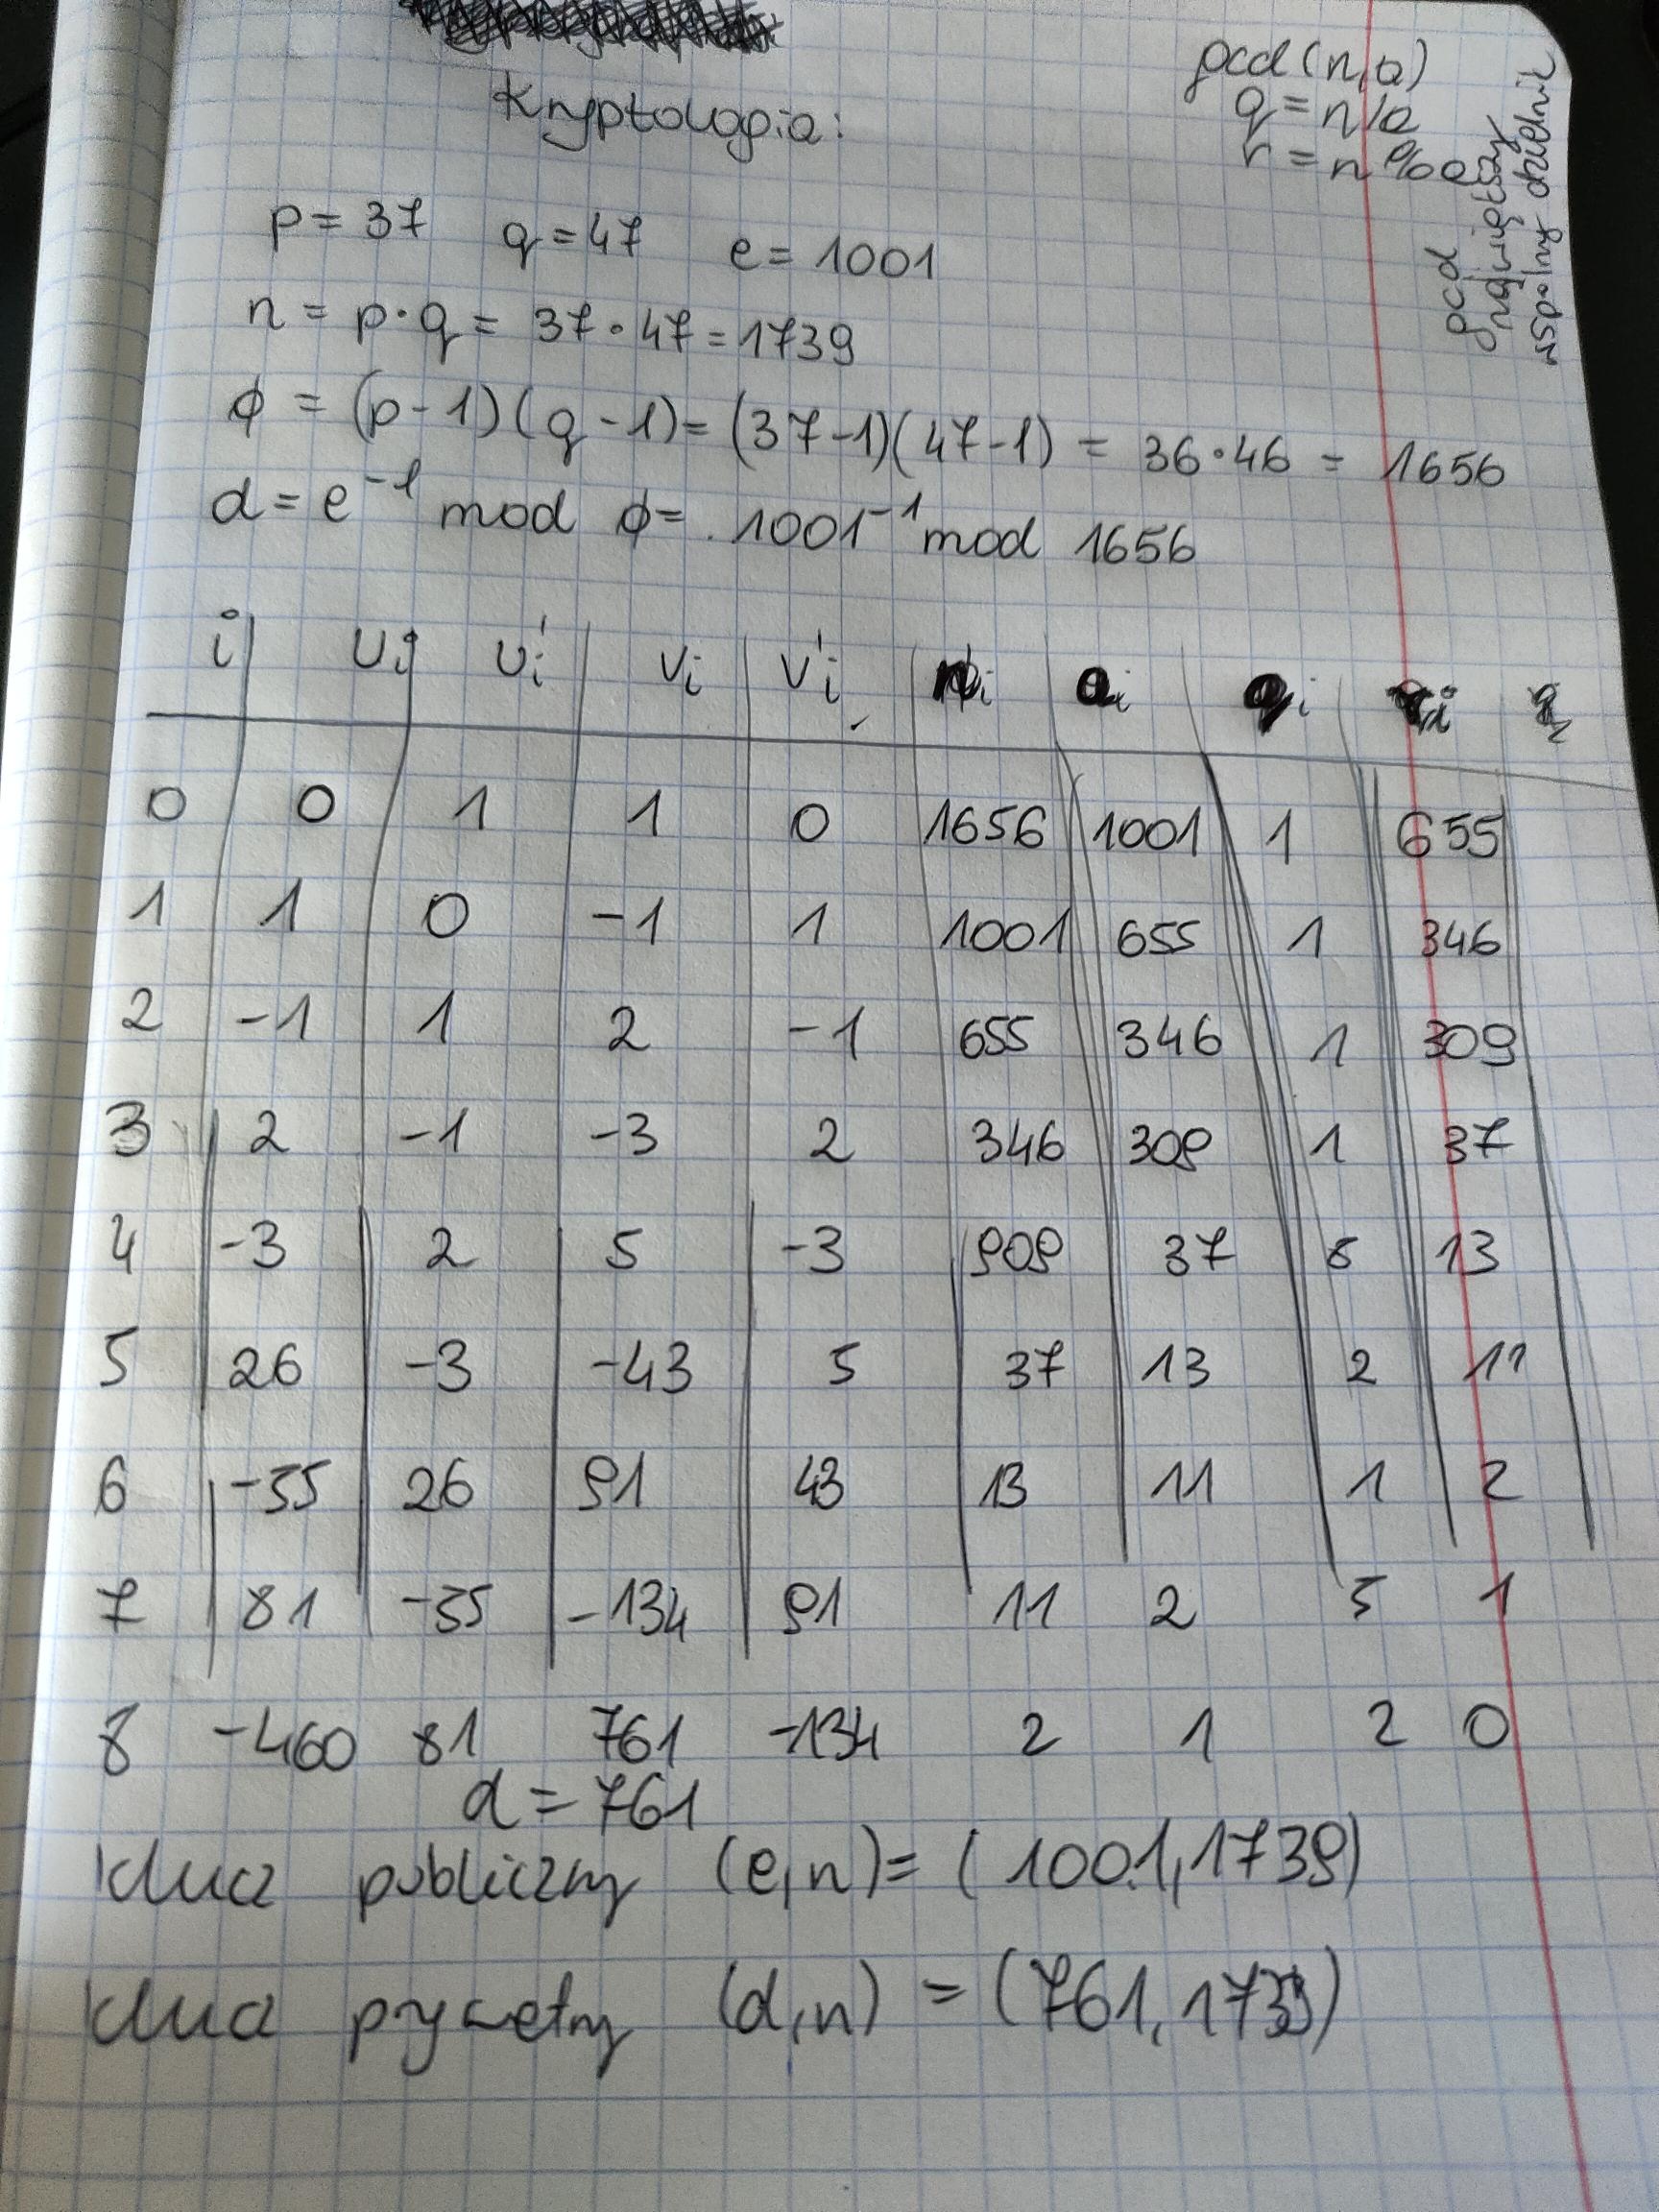 Kryptologia:
gcd(n,a)
q = n/a
r = n%a
gcd
największy
wspólny dzielnik
p = 37 q = 47 e = 1001
n = p·q = 37·47 = 1739
ϕ = (p-1)(q-1) = (37-1)(47-1) = 36·46 = 1656
d = e⁻¹ mod ϕ = 1001⁻¹ mod 1656
i Ui Ui' Vi Vi' ni ai qi ri
0 0 1 1 0 1656 1001 1 655
1 1 0 -1 1 1001 655 1 346
2 -1 1 2 -1 655 346 1 309
3 2 -1 -3 2 346 309 1 37
4 -3 2 5 -3 309 37 8 13
5 26 -3 -43 5 37 13 2 11
6 -55 26 91 43 13 11 1 2
7 81 -55 -134 91 11 2 5 1
8 -460 81 761 -134 2 1 2 0
d = 761
klucz publiczny (e,n) = (1001,1739)
klucz prywatny (d,n) = (761,1739)